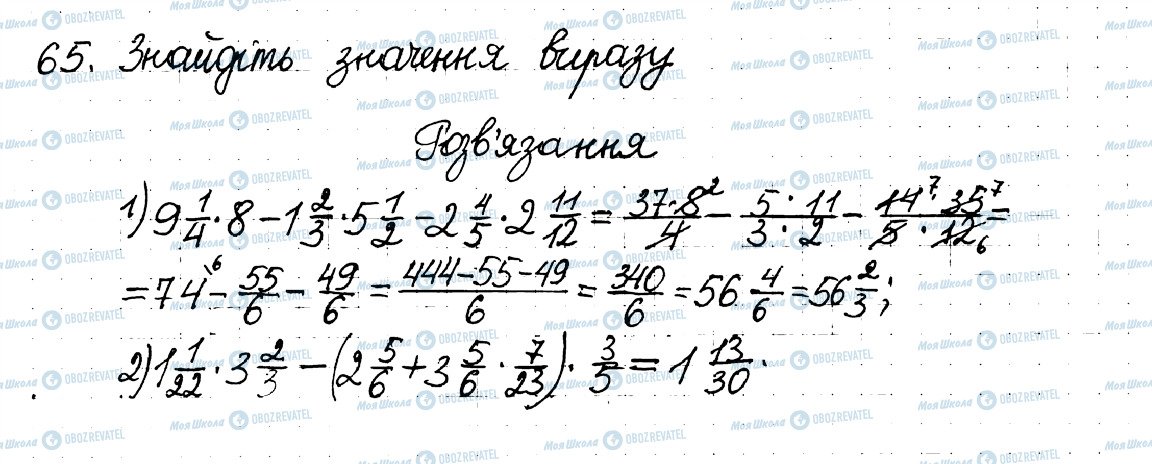 65. Знайдіть значення виразу
Розв'язання
1) 9 1/4 · 8 − 1 2/3 · 5 1/2 − 2 4/5 · 2 11/12 = 37·8²/4 − 5·11/3·2 − 14⁷·35⁷/5·12₆ =
= 74⁶ − 55/6 − 49/6 = 444−55−49/6 = 340/6 = 56 4/6 = 56 2/3;
2) 1 1/22 · 3 2/3 − (2 5/6 + 3 5/6 · 7/23) · 3/5 = 1 13/30.
Моя Школа OBOZREVATEL